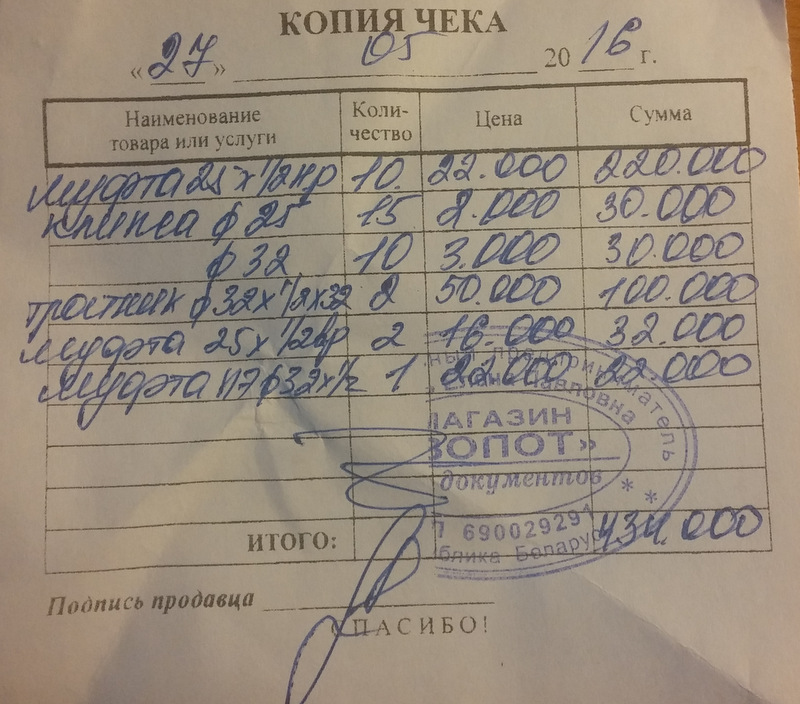 КОПИЯ ЧЕКА
«27» 05 2016 г.
Наименование товара или услуги Коли-чество Цена Сумма
муфта 25х1/2нр 10. 22.000 220.000
клипса ф25 15 2.000 30.000
ф32 10 3.000 30.000
тройник ф32х1/2х32 2 50.000 100.000
муфта 25х1/2вр 2 16.000 32.000
муфта ф32х1/2 1 22.000 22.000
предприниматель
Павловна
МАГАЗИН
документов
690029291
Беларусь
* *
ИТОГО: 434.000
Подпись продавца
СПАСИБО!